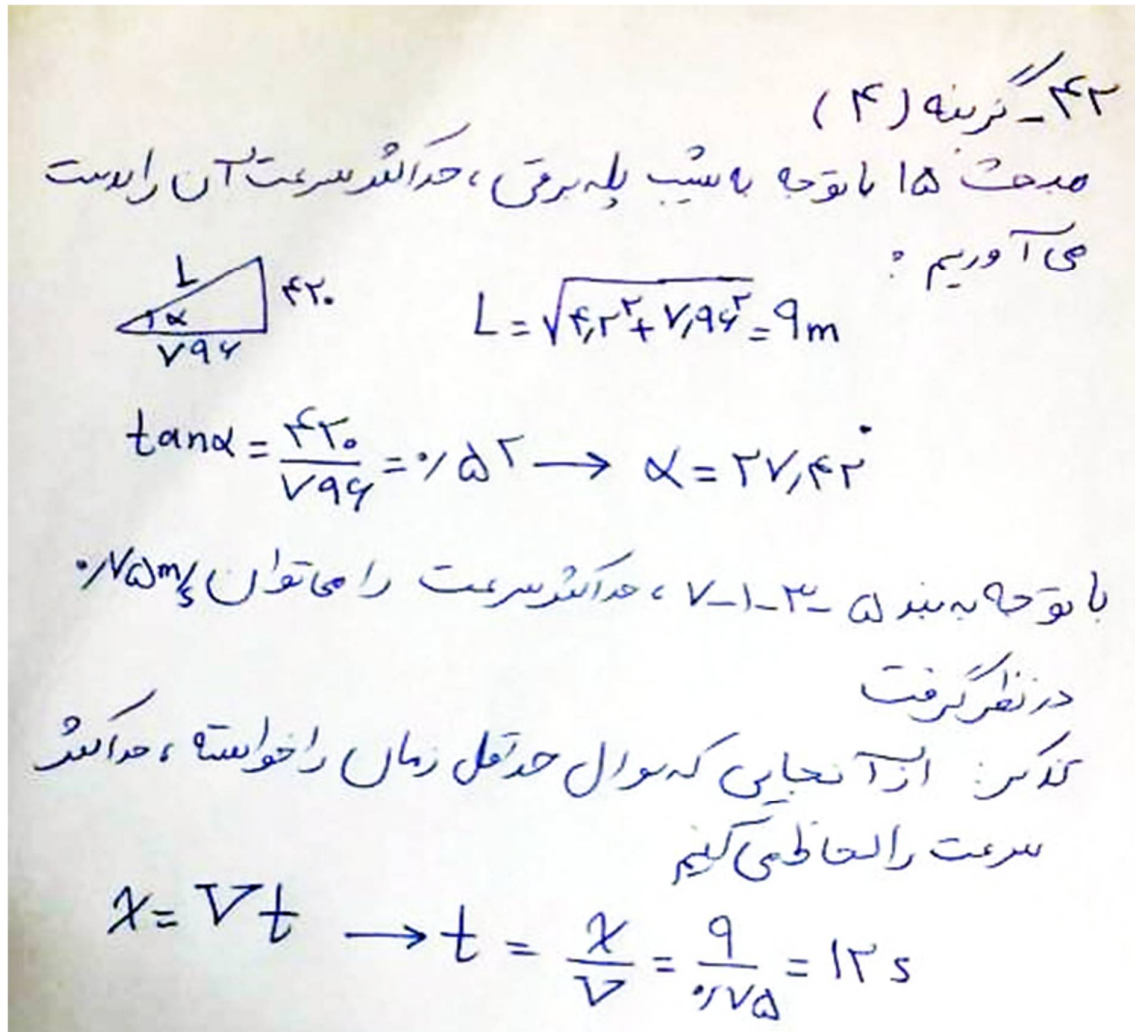 ۴۲- گزینه (۴)
مبحث ۱۵ با توجه به شیب پله برقی، حداکثر سرعت آن را بدست
می آوریم :
L
α
۴۲۰
۷۹۶
L = √۴٫۲² + ۷٫۹۶² = ۹m
tanα = ۴۲۰/۷۹۶ = ۰٫۵۲ → α = ۲۷٫۴۲°
با توجه به بند ۵-۳-۱-۷، حداکثر سرعت را می توان ۰٫۷۵ m/s
در نظر گرفت
تذکر: از آنجایی که سوال حداقل زمان را خواسته، حداکثر
سرعت را لحاظ می کنیم
x = Vt → t = x/V = ۹/۰٫۷۵ = ۱۲ s